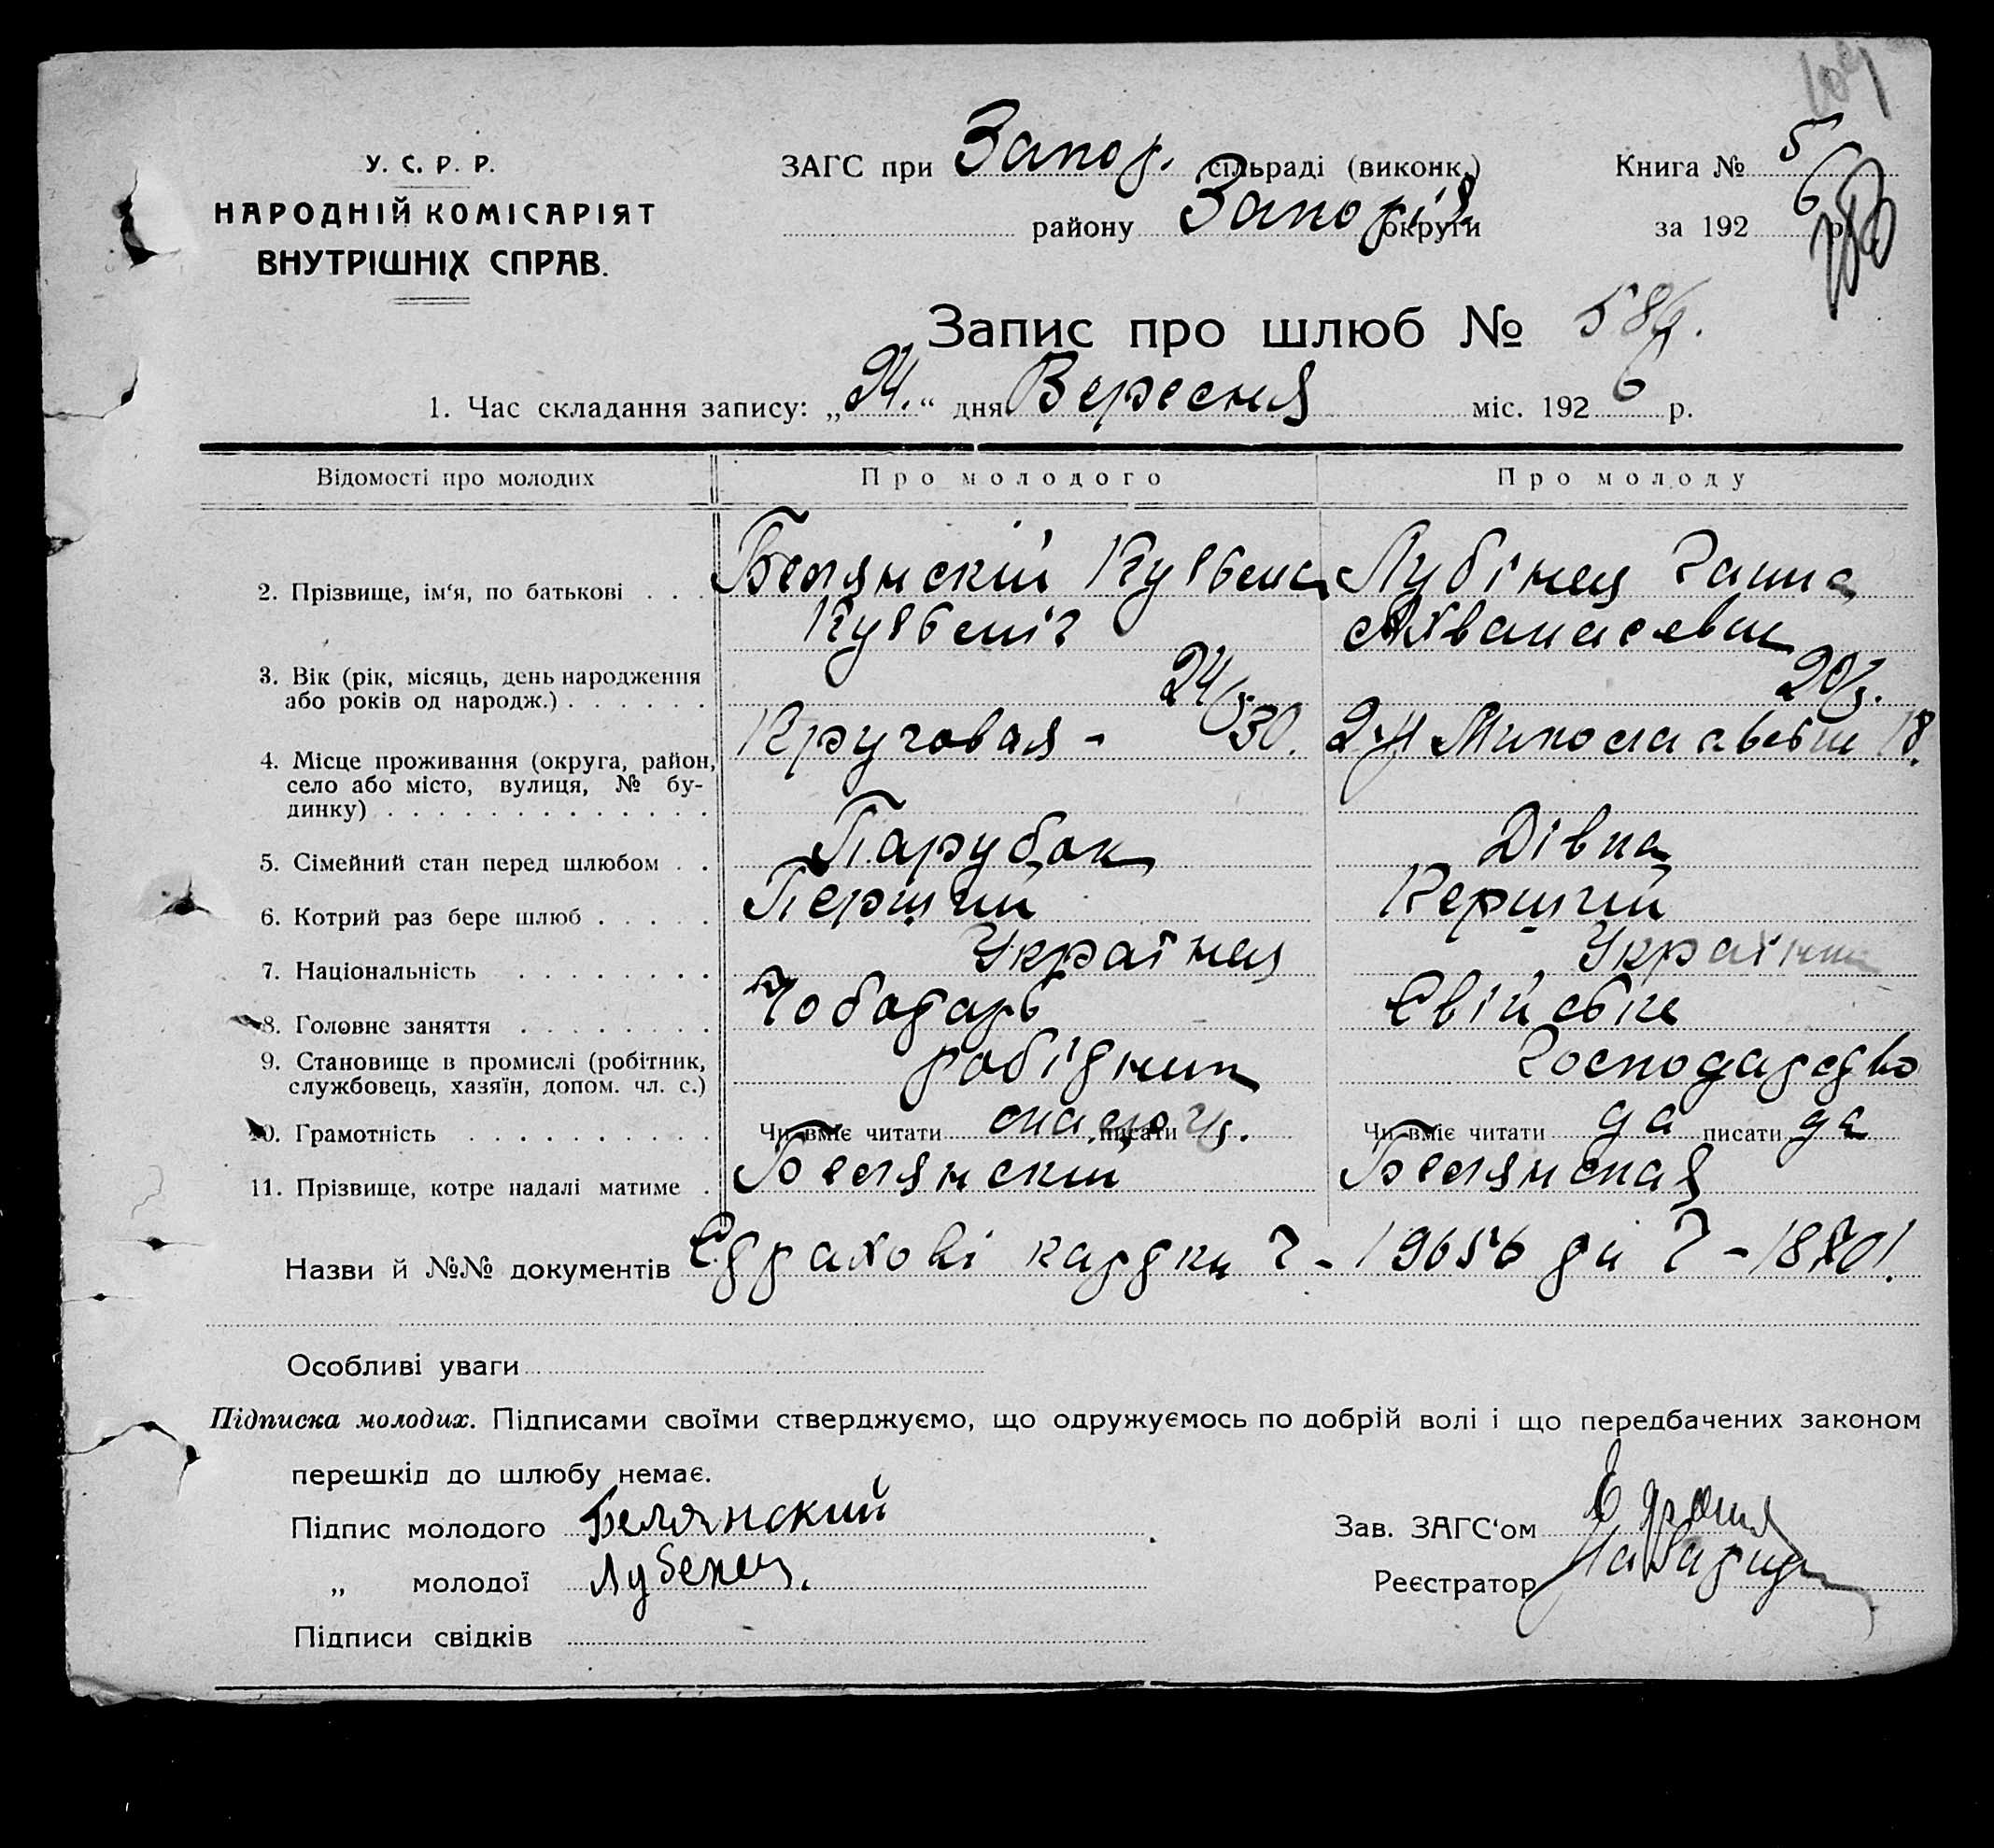 У. С. Р. Р.
НАРОДНІЙ КОМІСАРІЯТ
ВНУТРІШНІХ СПРАВ.
ЗАГС при Запор. сільраді (виконк.)
району Запоріз округи
Книга № 5
за 192 6 р.
Запис про шлюб № 586.
1. Час складання запису: „24.“ дня Вересня міс. 192 6 р.
Відомості про молодих Про молодого Про молоду
2. Прізвище, ім‘я, по батькові . . . Белянский Кузьма Лубінец Ганна
Кузьміч Ахванасевна
3. Вік (рік, місяць, день народження
або років од народж.) . . . . . . 24/ 20/
4. Місце проживання (округа, район,
село або місто, вулиця, № бу-
динку) . . . . . . . . . . . . . Круговая - 30. 18.
5. Сімейний стан перед шлюбом . . Парубок Дівка
6. Котрий раз бере шлюб . . . . . Перший Перший
7. Національність . . . . . . . . Українец Українка
8. Головне заняття . . . . . . . . Чоботарь Свійське
9. Становище в промислі (робітник,
службовець, хазяїн, допом. чл. с.) робітник господарство
10. Грамотність . . . . . . . . . . Чи вміє читати писати Чи вміє читати да писати да
11. Прізвище, котре надалі матиме . Белянский Белянская
Назви й №№ документів Страхові картки Ч - 19656 та Ч -
Особливі уваги
Підписка молодих. Підписами своїми стверджуємо, що одружуємось по добрій волі і що передбачених законом
перешкід до шлюбу немає.
Підпис молодого Белянский
Зав. ЗАГС‘ом
„ молодої Лубенец.
Реєстратор
Підписи свідків